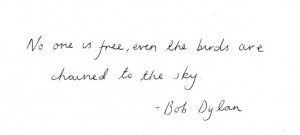 No one is free, even the birds are
chained to the sky.
- Bob Dylan